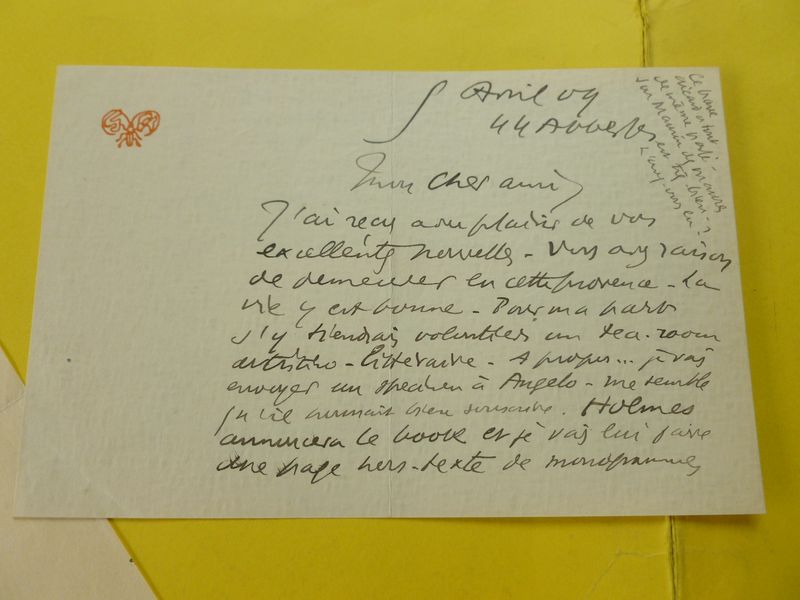 5 Avril 09
44 Abbesses
Mon cher ami
J'ai reçu avec plaisir de vos
excellentes nouvelles - Vous avez raison
de demeurer en cette Provence - La
vie y est bonne - Pour ma part
j'y tiendrais volontiers un tea-room
artistico-littéraire - A propos... je vais
envoyer un specimen à Angelo - me semble
qu'il pourrait bien souscrire. Holmes
annoncera le book et je vais lui faire
une page hors-texte de monogrammes